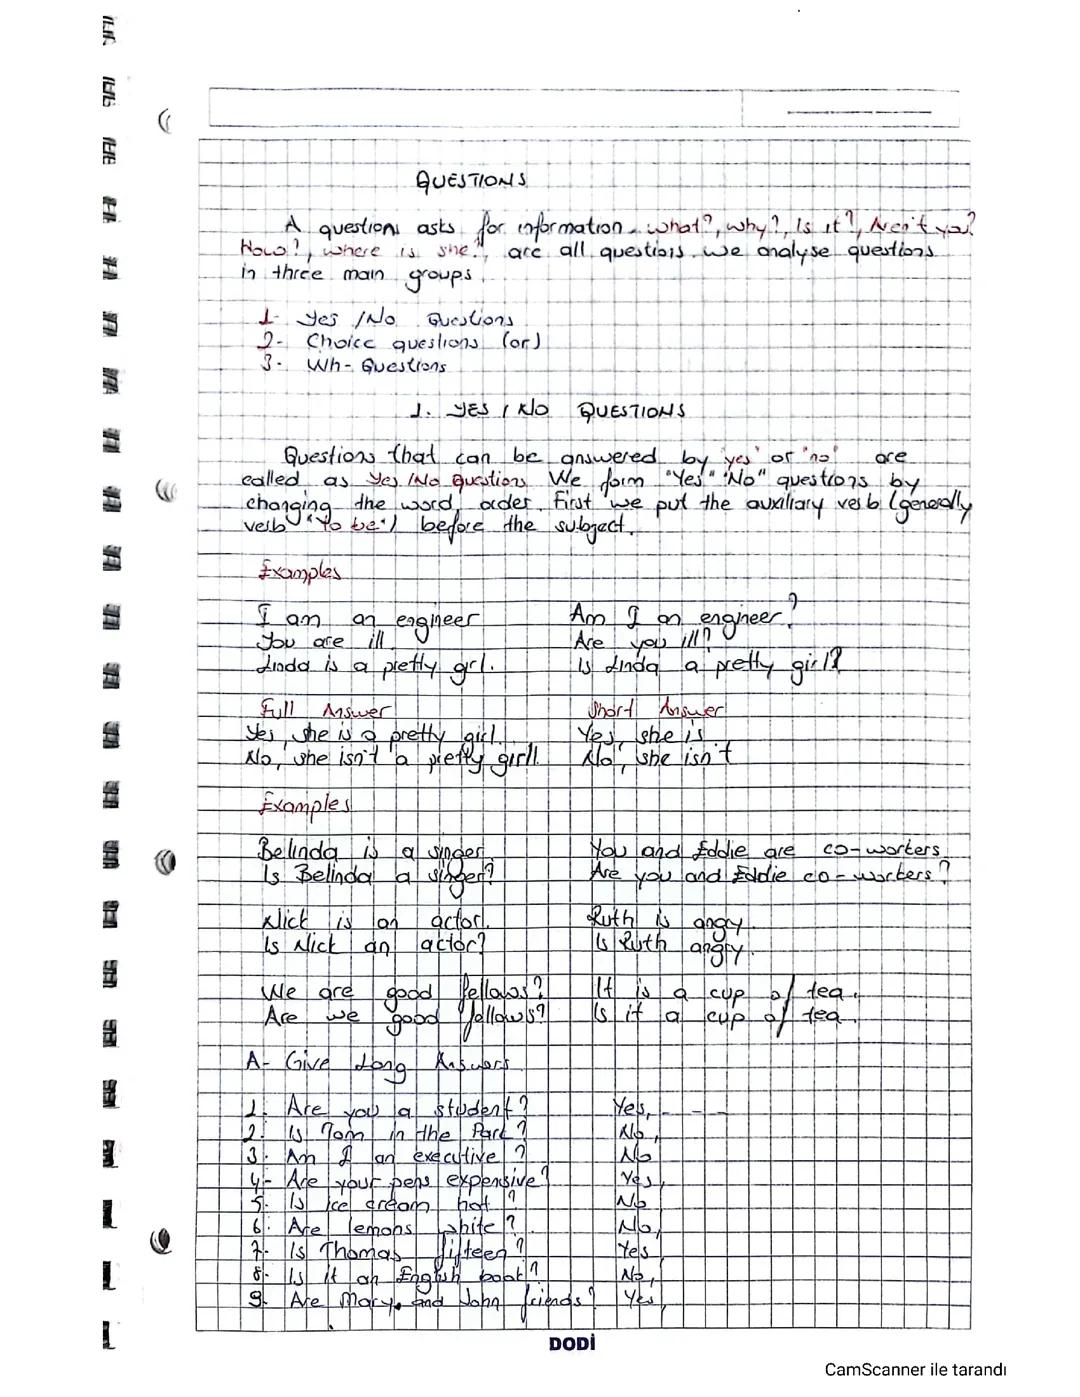 QUESTIONS
A question asks for information. What?, why?, Is it?, Aren't you?
How?, where is she?, are all questions. We analyse questions
in three main groups.
1- Yes / No Questions
2- Choice questions (or)
3- Wh- Questions
1. YES / NO QUESTIONS
Questions that can be answered by "yes" or "no" are
called as Yes / No Question. We form "Yes" "No" questions by
changing the word order. First we put the auxiliary verb (generally
verb "to be") before the subject.
Examples
I am an engineer Am I an engineer?
You are ill. Are you ill?
Linda is a pretty girl. Is Linda a pretty girl?
Full Answer Short Answer
Yes, she is a pretty girl. Yes, she is
No, she isn't a pretty girl. No, she isn't
Examples
Belinda is a singer. You and Eddie are co-workers.
Is Belinda a singer? Are you and Eddie co-workers?
Nick is an actor. Ruth is angry.
Is Nick an actor? Is Ruth angry.
We are good fellows? It is a cup of tea.
Are we good fellows? Is it a cup of tea.
A- Give Long Answers
1. Are you a student? Yes, - - -
2. Is Tom in the Park? No,
3. Am I an executive? No
4- Are your pens expensive? Yes,
5. Is ice cream hot? No
6. Are lemons white? No,
7. Is Thomas fifteen? Yes
8. Is it an English book? No,
9. Are Mary and John friends? Yes,
DODİ
CamScanner ile tarandı